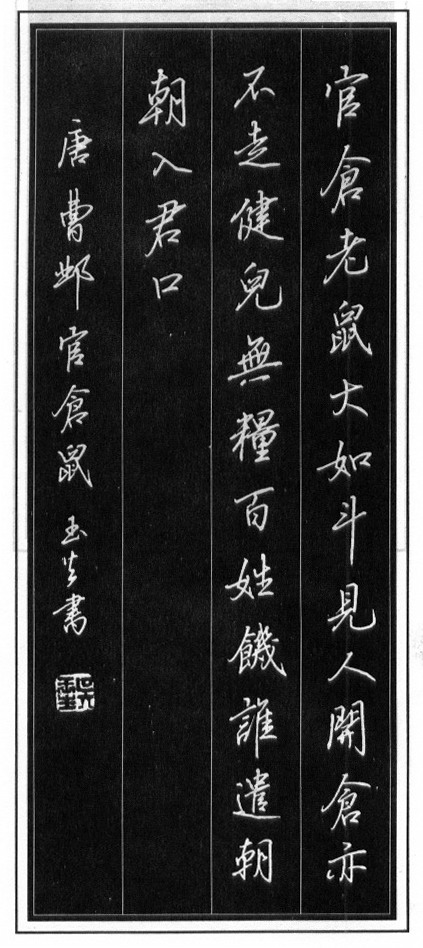 官倉老鼠大如斗見人開倉亦
不走健兒無糧百姓饑誰遣朝
朝入君口
唐曹邺官倉鼠 玉書